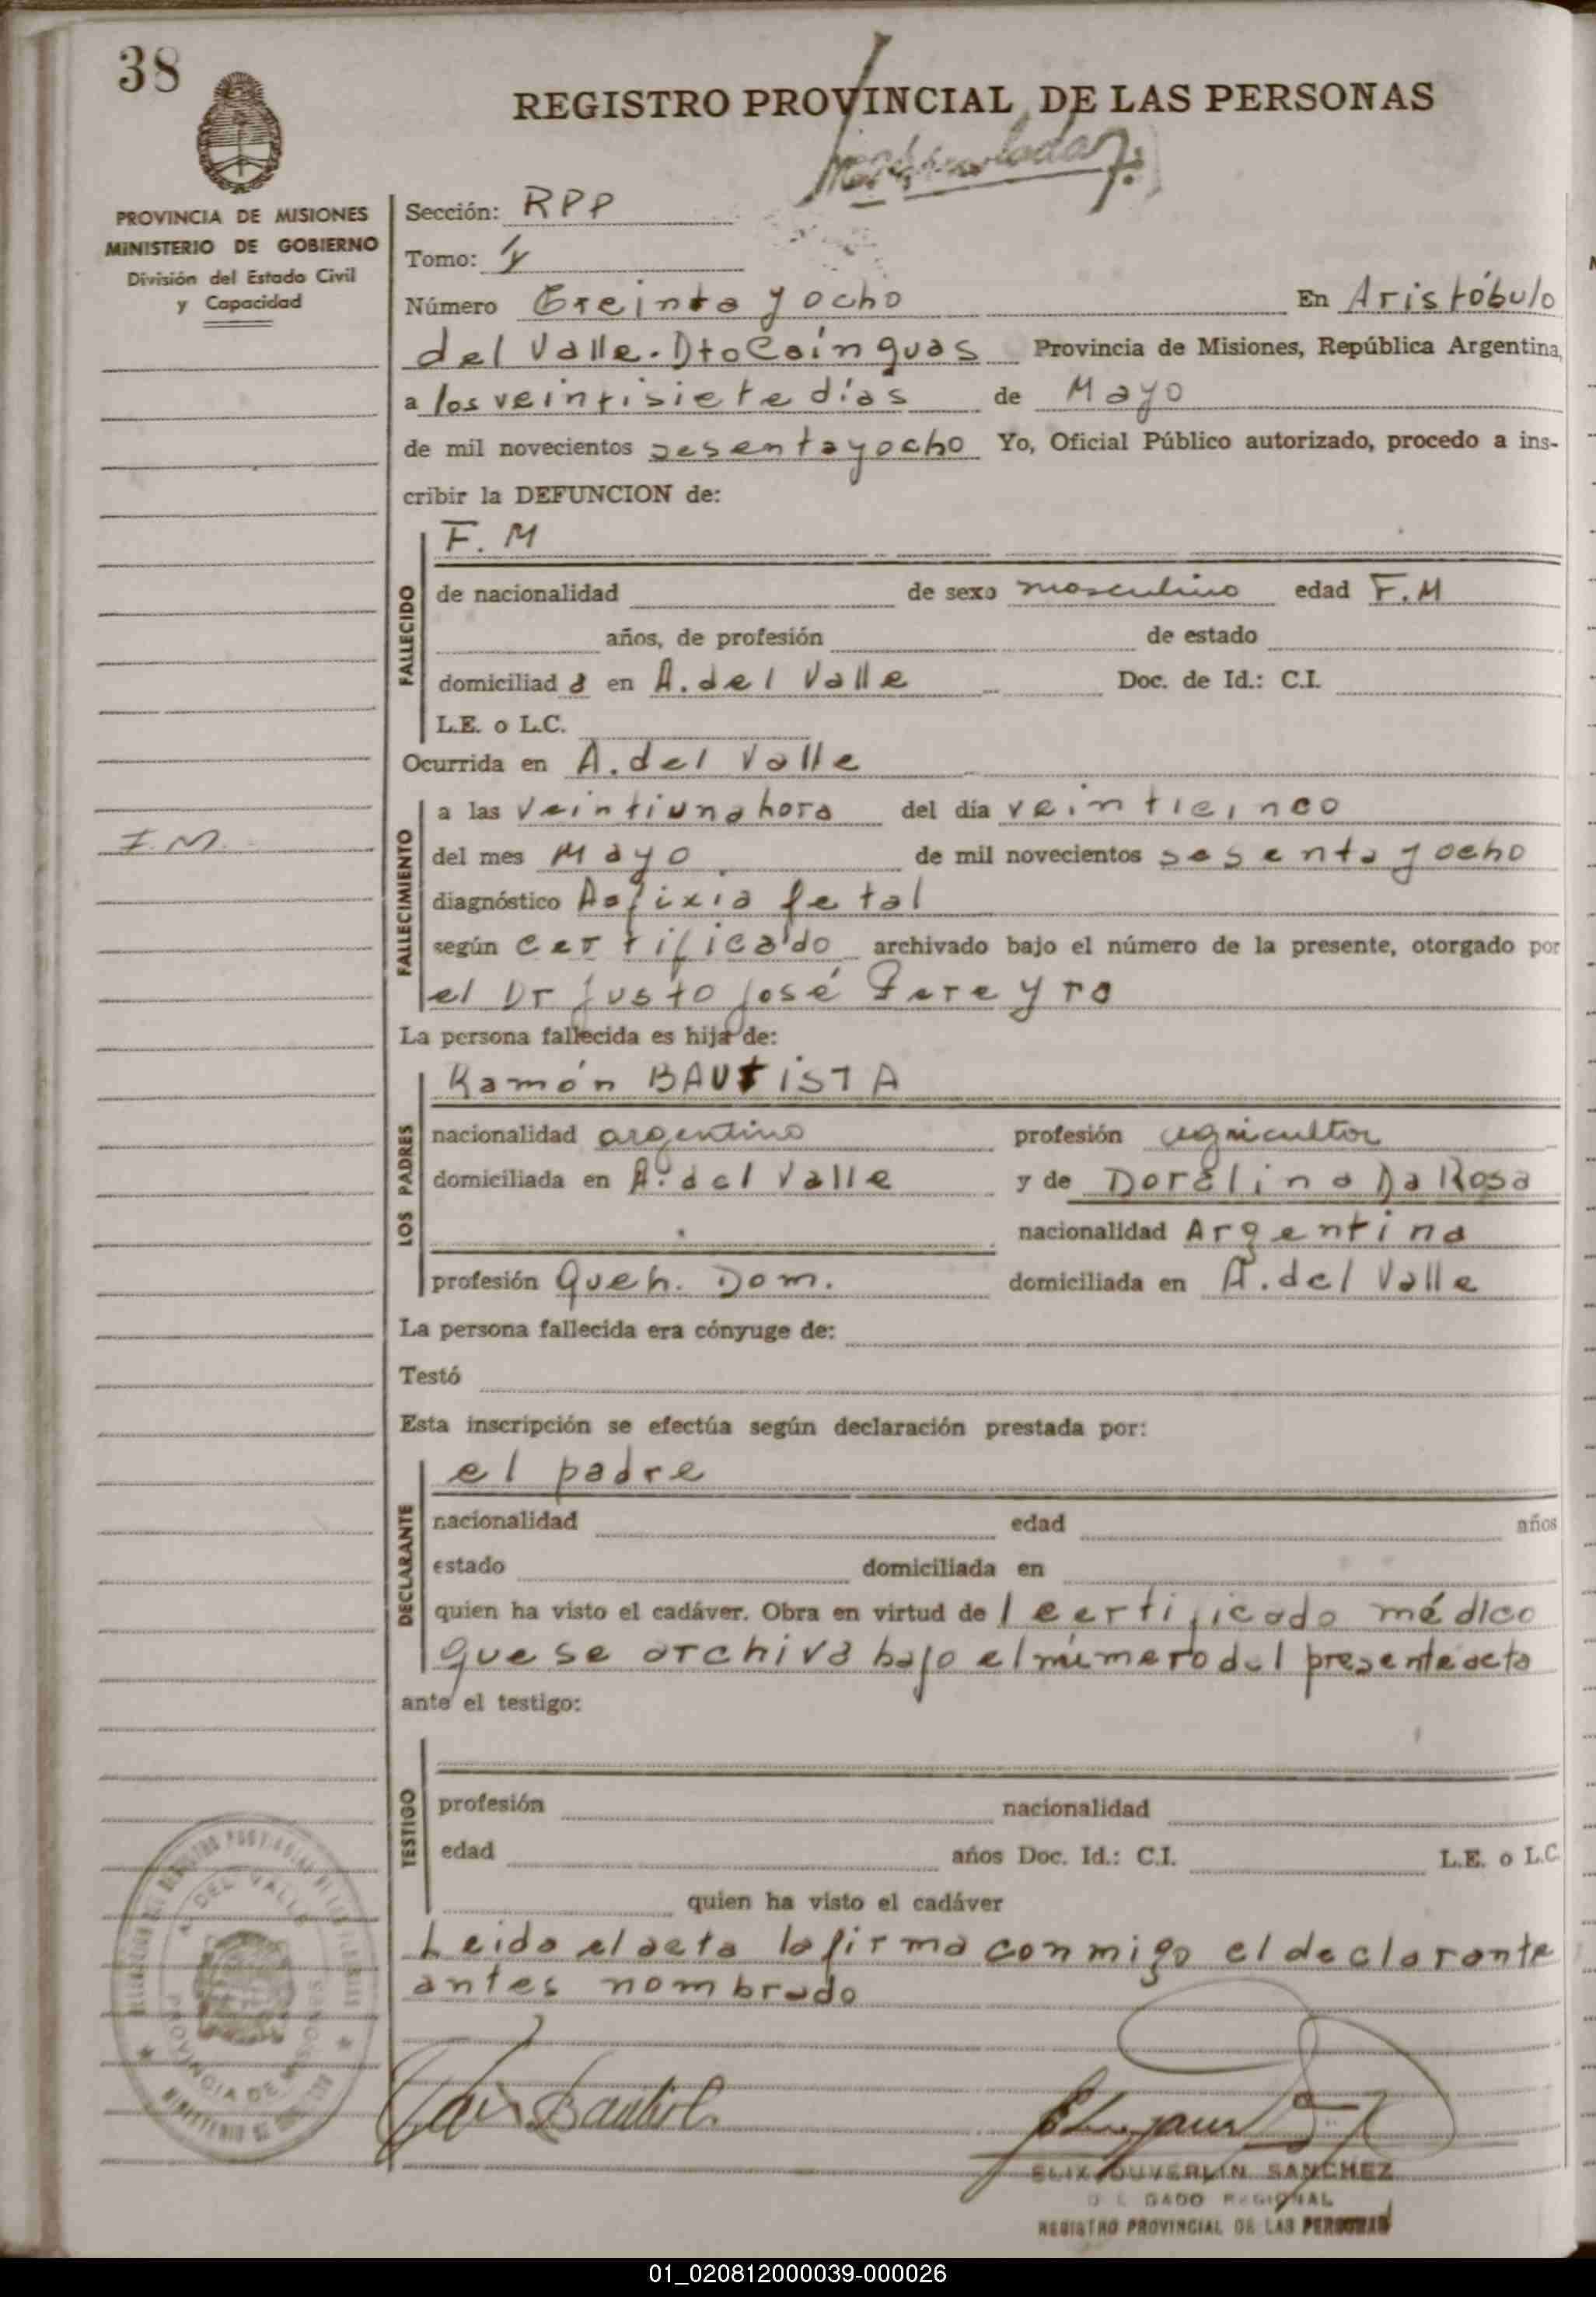 38
REGISTRO PROVINCIAL DE LAS PERSONAS
PROVINCIA DE MISIONES
MINISTERIO DE GOBIERNO
División del Estado Civil
y Capacidad
Sección: RPP
Tomo:
Número Treinta y ocho En Aristóbulo
del Valle. Dto Cainguas Provincia de Misiones, República Argentina,
a los veintisiete días de Mayo
de mil novecientos sesenta y ocho Yo, Oficial Público autorizado, procedo a ins-
cribir la DEFUNCION de:
F. M
FALLECIDO
de nacionalidad de sexo masculino edad F.M
años, de profesión de estado
domiciliad a en A. del Valle Doc. de Id.: C.I.
L.E. o L.C.
Ocurrida en A. del Valle
FALLECIMIENTO
a las veintiuna hora del día veinticinco
F.M.
del mes Mayo de mil novecientos sesenta y ocho
diagnóstico Asfixia fetal
según certificado archivado bajo el número de la presente, otorgado por
el Dr Justo José Pereyra
La persona fallecida es hija de:
LOS PADRES
Ramón BAUTISTA
nacionalidad argentino profesión agricultor
domiciliada en A. del Valle y de Doralina Da Rosa
nacionalidad Argentina
profesión Queh. Dom. domiciliada en A. del Valle
La persona fallecida era cónyuge de:
Testó
Esta inscripción se efectúa según declaración prestada por:
DECLARANTE
el padre
nacionalidad edad años
estado domiciliada en
quien ha visto el cadáver. Obra en virtud de l certificado médico
que se archiva bajo el número del presente acta
ante el testigo:
TESTIGO
profesión nacionalidad
edad años Doc. Id.: C.I. L.E. o L.C
quien ha visto el cadáver
Leida el acta la firma conmigo el declarante
antes nombrado
A. DEL VALLE
PROVINCIA DE MISIONES
Bautista
SANCHEZ
REGIONAL
REGISTRO PROVINCIAL DE LAS PERSONAS
01_020812000039-000026